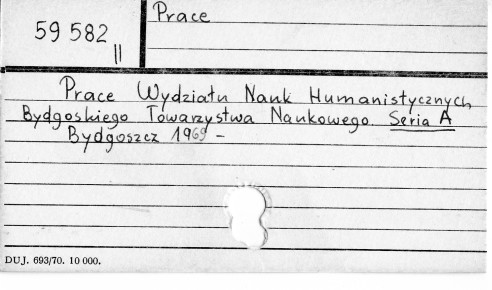 59 582
II
Prace
Prace Wydziału Nauk Humanistycznych
Bydgoskiego Towarzystwa Naukowego. Seria A
Bydgoszcz 1969 -
DUJ. 693/70. 10 000.